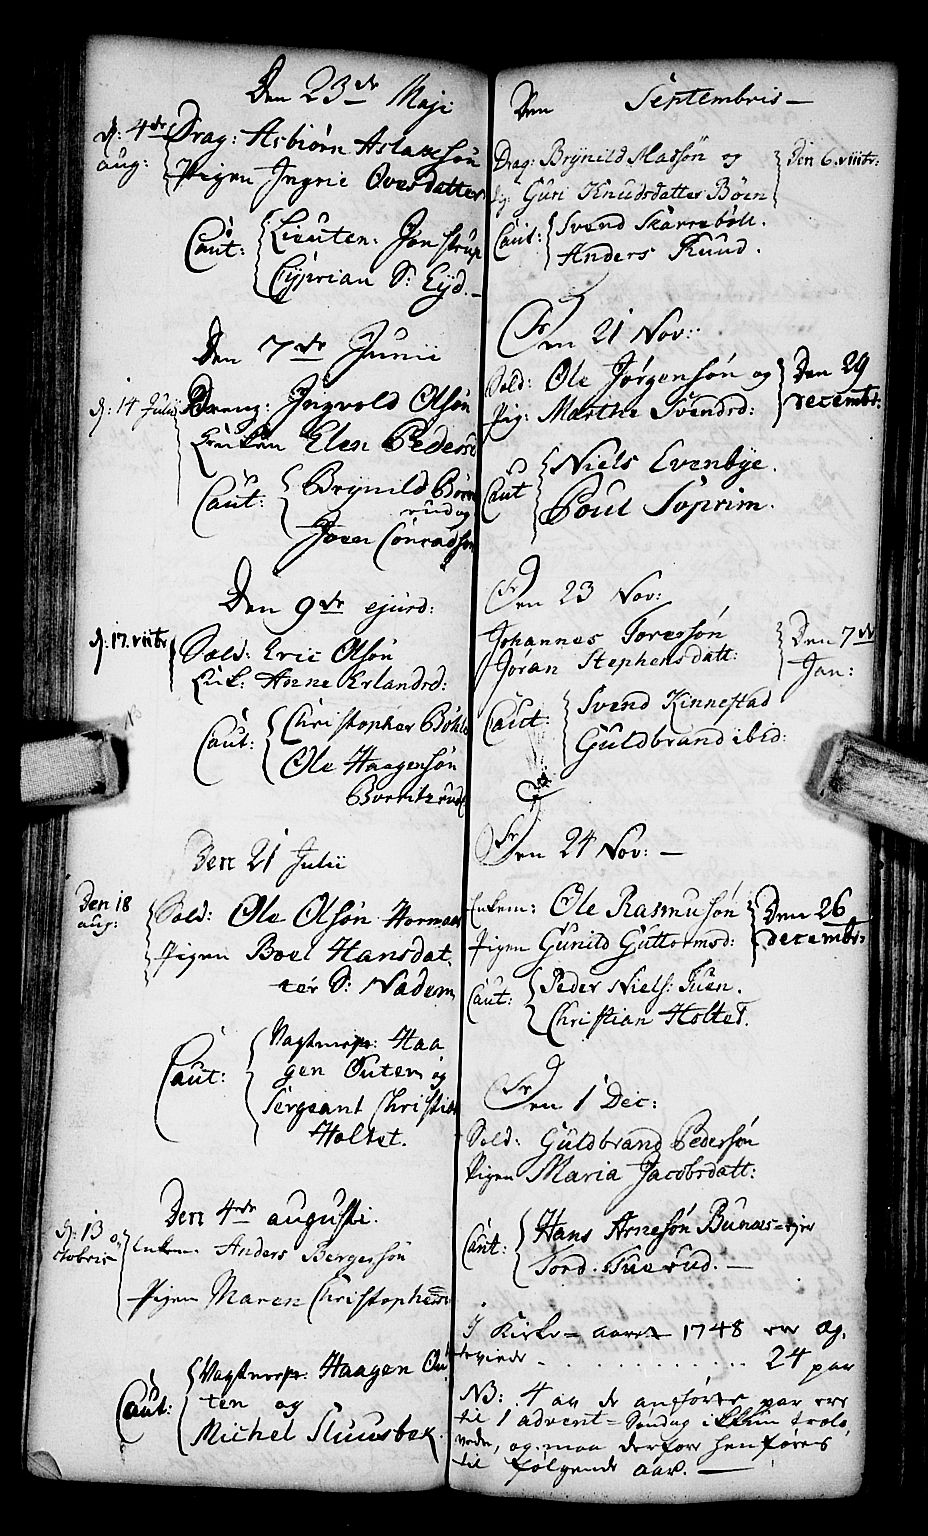 Den 23de Maji
d: 4de
aug:
Drag: Asbiörn Aslaxsön
Pigen Ingrie Oversdatter
Caut: Lieuten: Jonstrup
Cyprian S: Eyd.
Den 7de Junii
d: 14 Julij
Dreng: Ingvold Olsön
Enken Elen Pedersd
Caut: Brynild Börre
rud og
Joen Conradsön
Den 9de ejusd:
d: 17. viiibr
Sold: Eric Olsön
Enk: Anne Erlandsd:
Caut: Christopher Böhle
Ole Haagensön
Bveritzrud
Den 21 Julii
Den 18
aug:
Sold: Ole Olsön Hormae
Pigen Boel Hansdat
ter S: Nadem
Caut: Vagtmester Haa
gen Outen og
Sergeant Christian
Holtet.
Den 4de augusti.
d: 13 o
ctobris
Enkem. Anders Bergersön
Pigen Maren Christophersd
Caut: Vagtmester Haagen Ou
ten og
Michel Sluusbek.
Den Septembris
Drag: Brynild Madsön og
Pig: Guri Knudsdatter Böen
Den 6. viiibr:
Caut: Svend Skarreböll.
Anders Ruud.
Den 21 Nov:
Sold: Ole Jörgensön og
Pig: Marthe Svendsd:
Den 29
decembr:
Caut Niels Evenbye.
Poul Soprim.
Den 23 Nov:
Johannes Toressön
Joran Stephensdatt:
Den 7de
Jan:
Caut: Svend Kinnestad
Guldbrand ibid:
Den 24 Nov:
Enkem: Ole Rasmusön
Pigen Gunild Guttormsd:
Den 26
decembr:
Caut: Peder Niels: Tuen.
Christian Holtet.
Den 1 Dec:
Sold: Guldbrand Pedersön
Pigen Maria Jacobsdatt:
Caut: Hans Arnesön Bunæs-ejer
Tord Tuerud.
I Kirke-aaret 1748 ere Ag.
tevinde . . . . . . . 24 par
NB: 4 av de anförte par ere
til 1 advent-Søndag i trolo,
vede, og maa derfore henføres
til følgende aar.